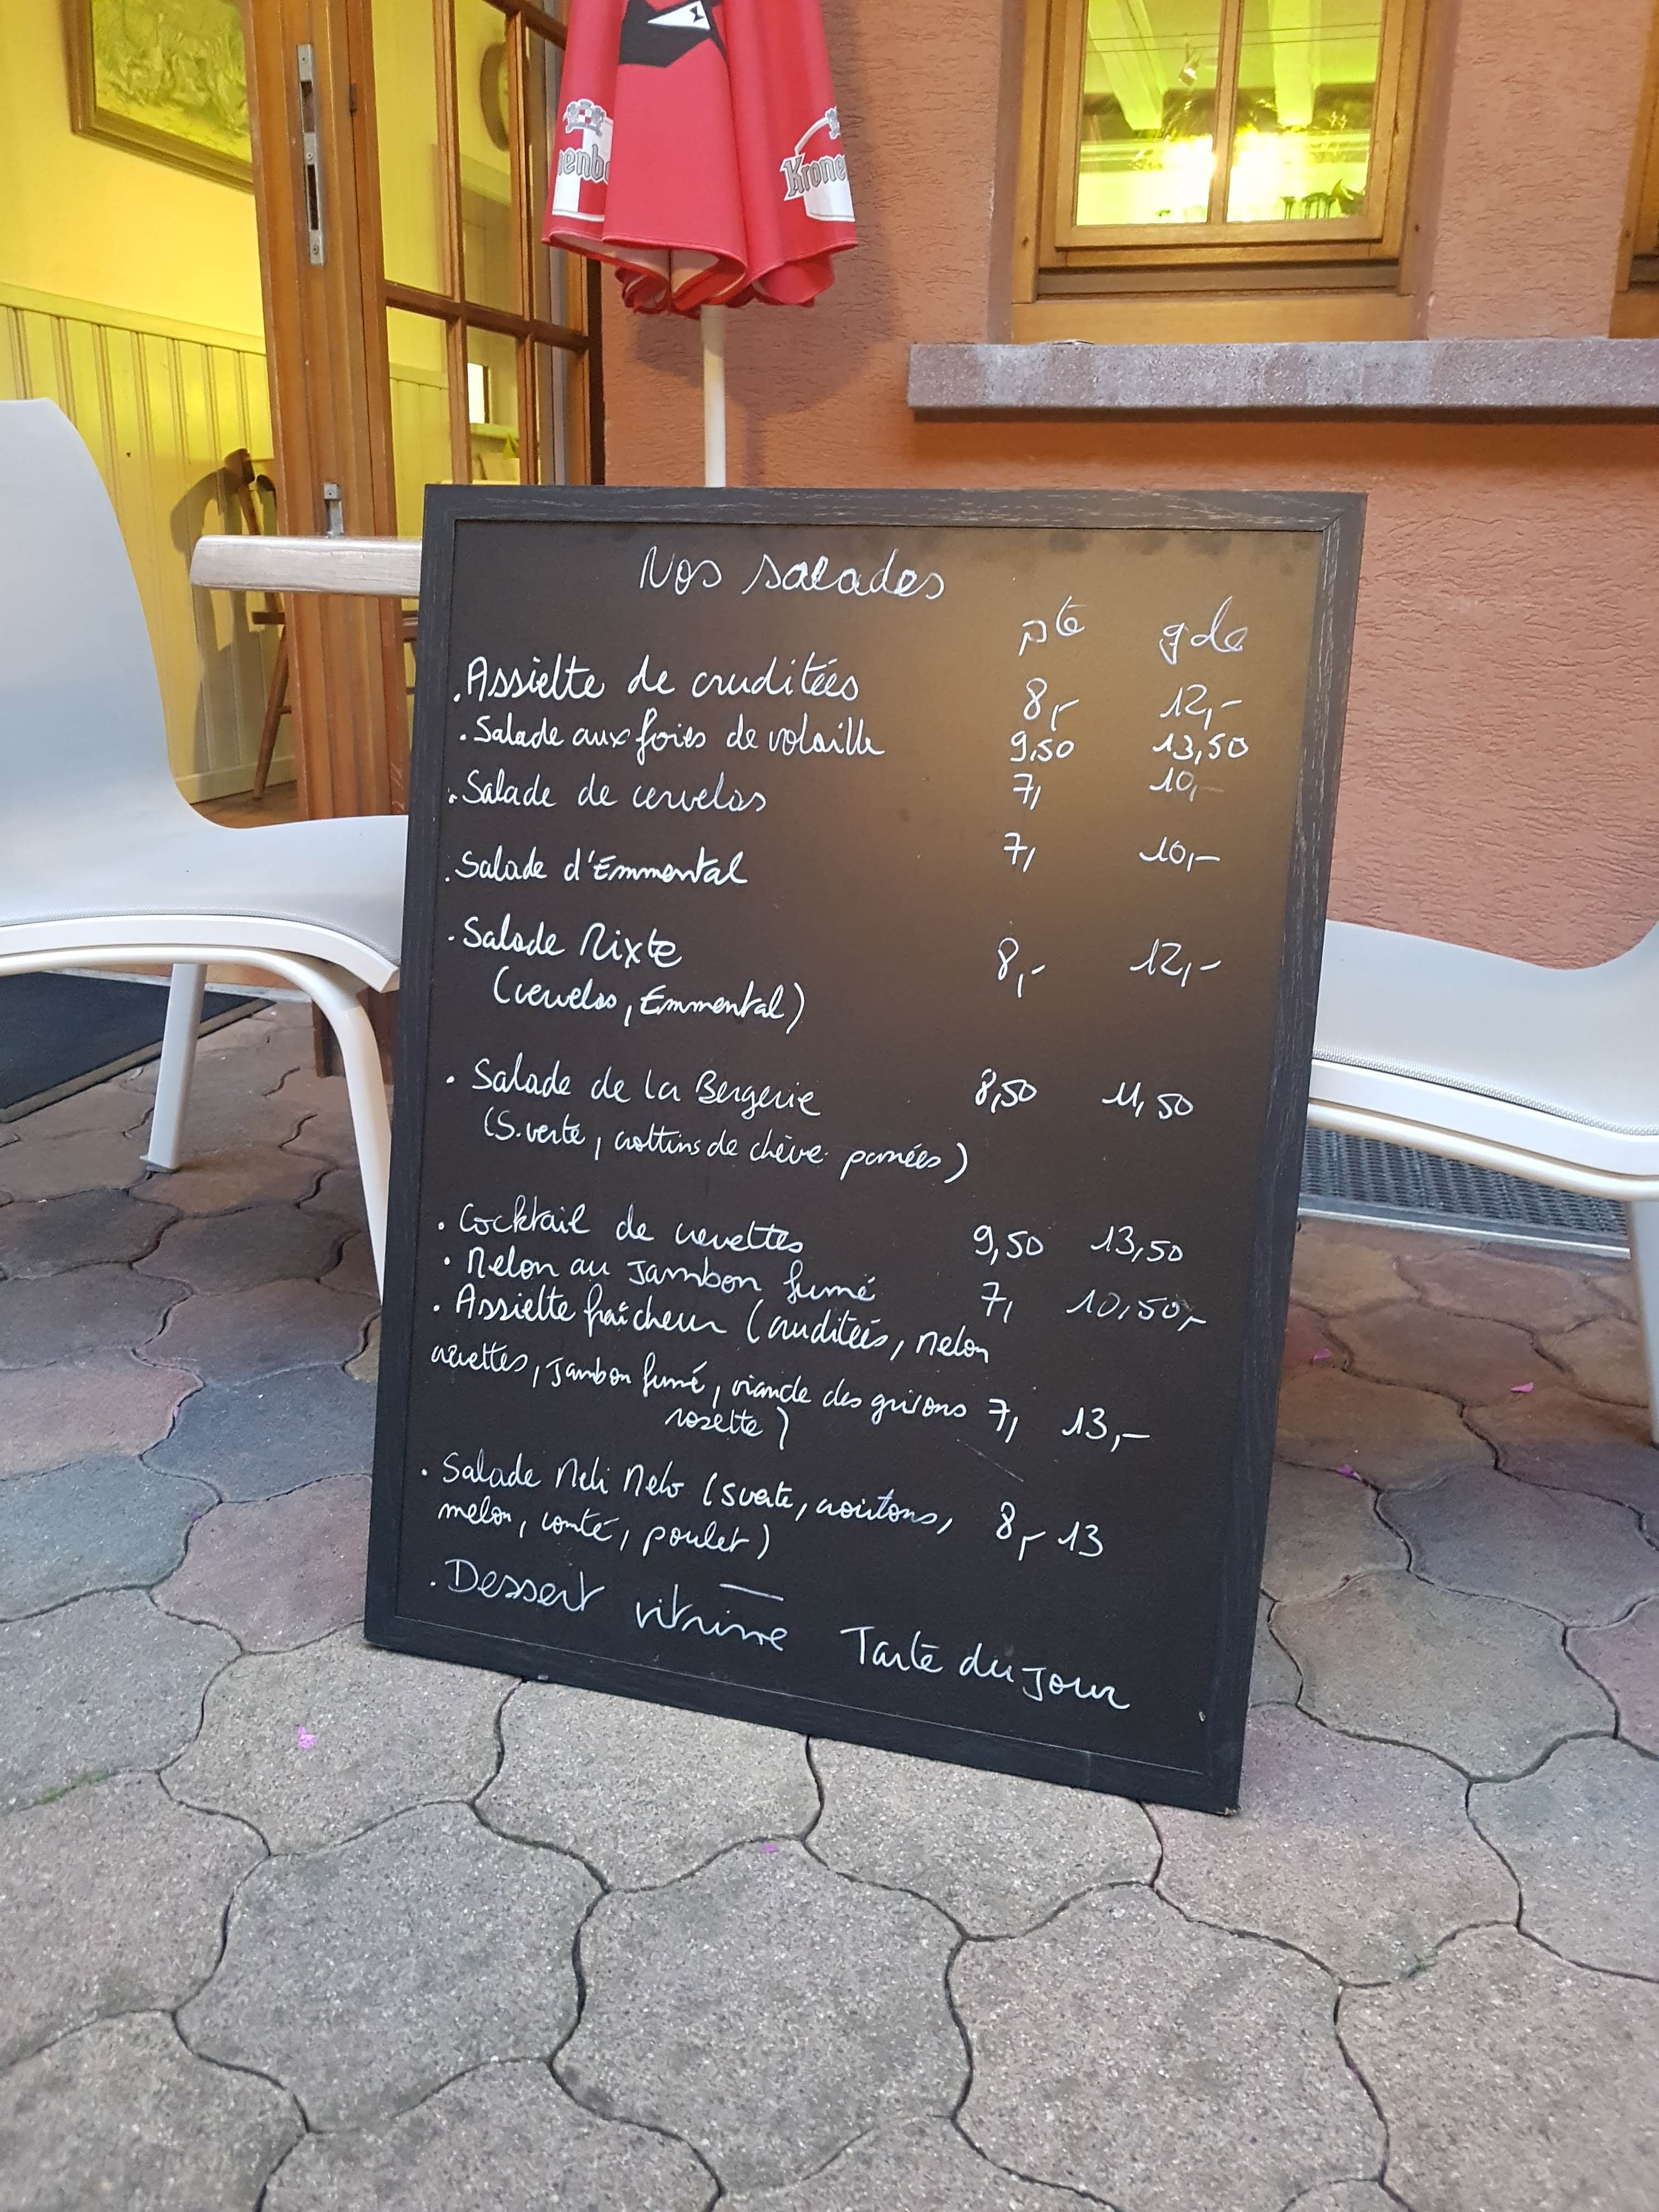 nenb
Krone
Nos salades
pte gde
. Assiette de cruditées 8,- 12,-
. Salade aux foies de volaille 9,50 13,50
. Salade de cervelas 7, 10,-
. Salade d'Emmental 7, 10,-
. Salade Mixte 8,- 12,-
(cervelas, Emmental)
. Salade de la Bergerie 8,50 11,50
(S. verte, crottins de chèvre panées)
. Cocktail de crevettes 9,50 13,50
. Melon au Jambon fumé 7, 10,50,-
. Assiette fraîcheur (cruditées, melon
crevettes, Jambon fumé, viande des grisons 7, 13,-
rosette)
. Salade Meli Melo (s verte, croûtons, 8,- 13
melon, comté, poulet)
. Dessert vitrine Tarte du Jour